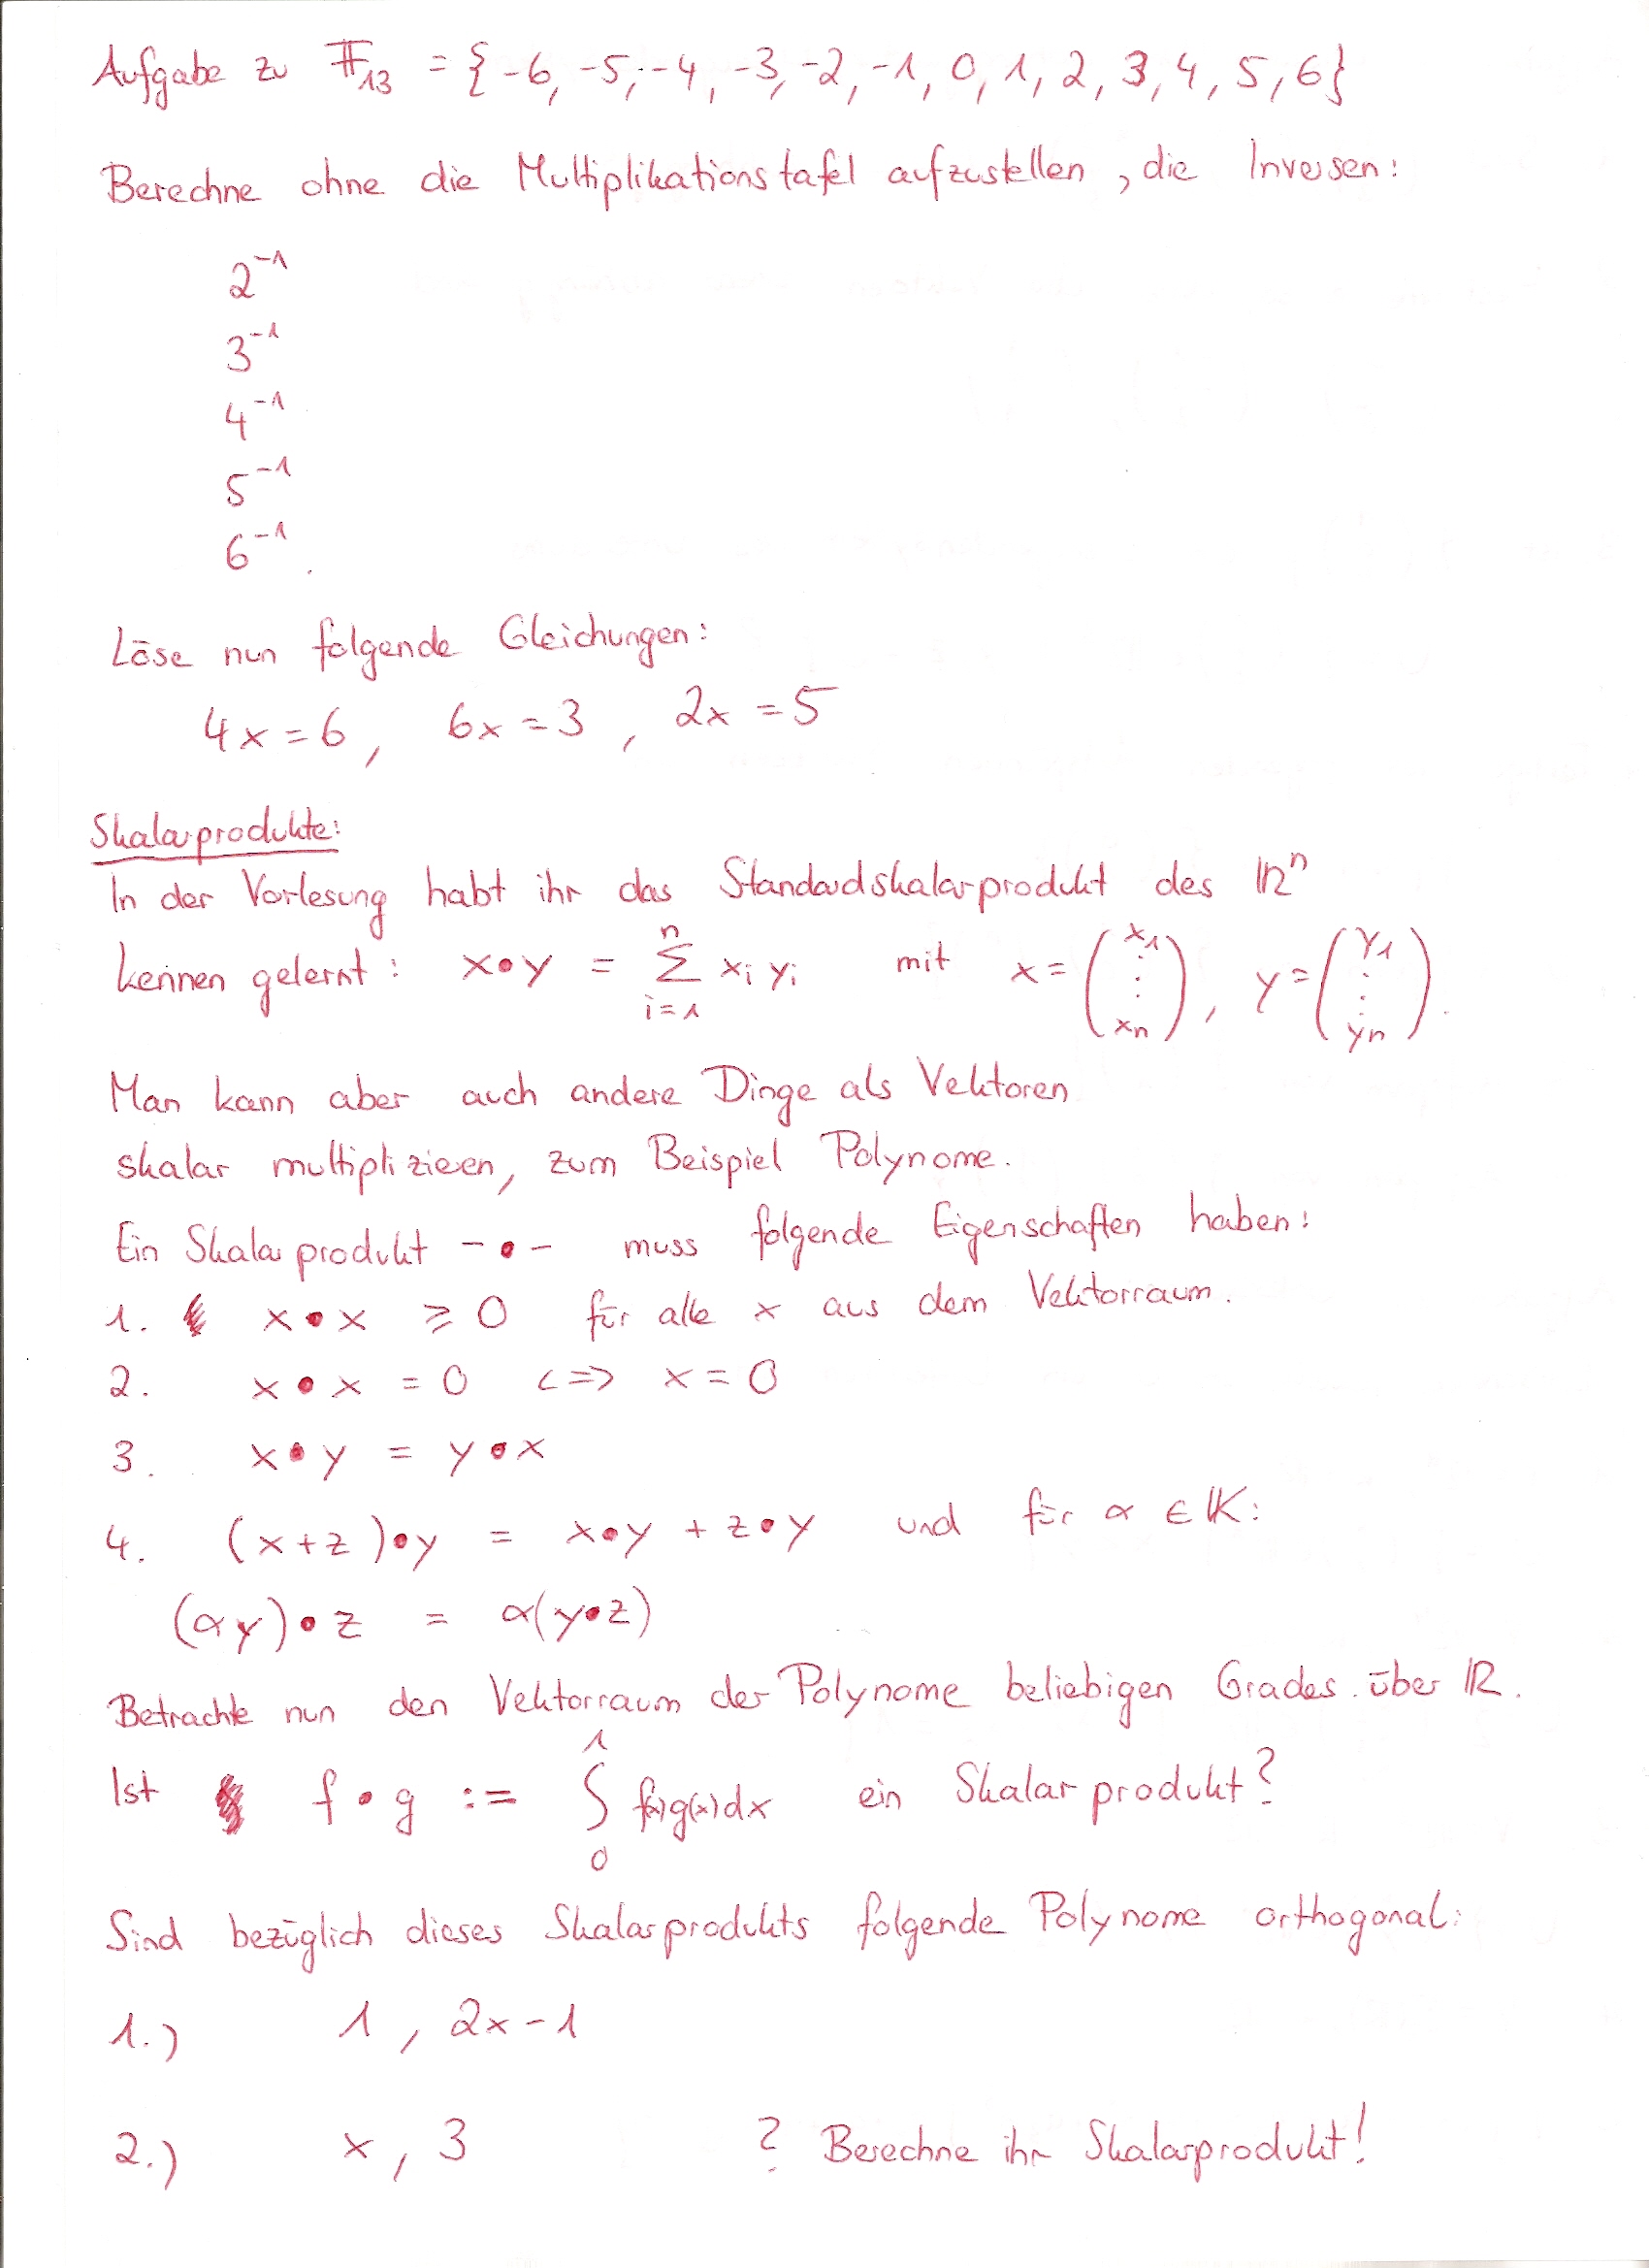 Aufgabe zu 𝔽₁₃ = {-6, -5, -4, -3, -2, -1, 0, 1, 2, 3, 4, 5, 6}
Berechne ohne die Multiplikationstafel aufzustellen, die Inversen:
2⁻¹
3⁻¹
4⁻¹
5⁻¹
6⁻¹.
Löse nun folgende Gleichungen:
4x = 6, 6x = 3, 2x = 5
Skalarprodukte:
In der Vorlesung habt ihr das Standardskalarprodukt des ℝⁿ
kennen gelernt: x•y = ∑ᵢ₌₁ⁿ xᵢ yᵢ mit x = (x₁ ⋮ xₙ), y = (y₁ ⋮ yₙ).
Man kann aber auch andere Dinge als Vektoren
skalar multiplizieren, zum Beispiel Polynome.
Ein Skalarprodukt -•- muss folgende Eigenschaften haben:
1. x•x ≥ 0 für alle x aus dem Vektorraum.
2. x•x = 0 <=> x = 0
3. x•y = y•x
4. (x+z)•y = x•y + z•y und für α ∈ 𝕂:
(αy)•z = α(y•z)
Betrachte nun den Vektorraum der Polynome beliebigen Grades über ℝ.
Ist f•g := ∫₀¹ f(x)g(x)dx ein Skalarprodukt?
Sind bezüglich dieses Skalarprodukts folgende Polynome orthogonal:
1.) 1, 2x-1
2.) x, 3 ? Berechne ihr Skalarprodukt!